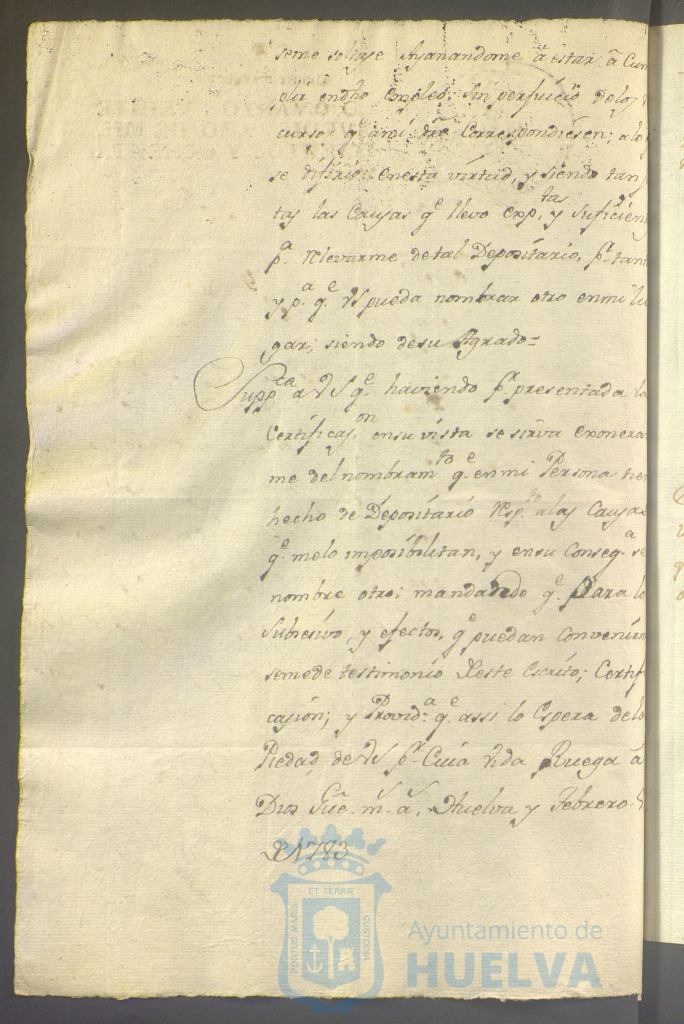 seme soltase Ayanandome â estar â Cum
plir en dho Empleo, sin perjuicio de los
cursos q.e a mi me Correspondiesen; a lo
se difirio en esta virtud, y siendo tan
tas las Causas q.e llevo exp.tas y suficien
p.a relevarme de tal Depositario, p.r tant
y p.a q.e VS pueda nombrar otro en mi lu
gar, siendo de su Agrado=
Supp.ca a VS q.e haviendo p.r presentada la
Certificas.on en su vista se sirva exonera
me del nombram.to q.e en mi Persona tien
hecho de Depositario resp.to a las Causas
q.e me lo imposibilitan, y en su Conseq.a se
nombre otro; mandando q.e para lo
Subcesivo, y efectos, q.e puedan convenirm
se me de testimonio deste Escrito; Certifi
casion; y Provid.a q.e assi lo Espera de la
Piedad de VS p.r Cuia Vida Ruega a
Dios Gûe m.s a.s Huelva y Febrero
1783
PORTUS MARIS ET TERRÆ CUSTODIA
Ayuntamiento de
HUELVA